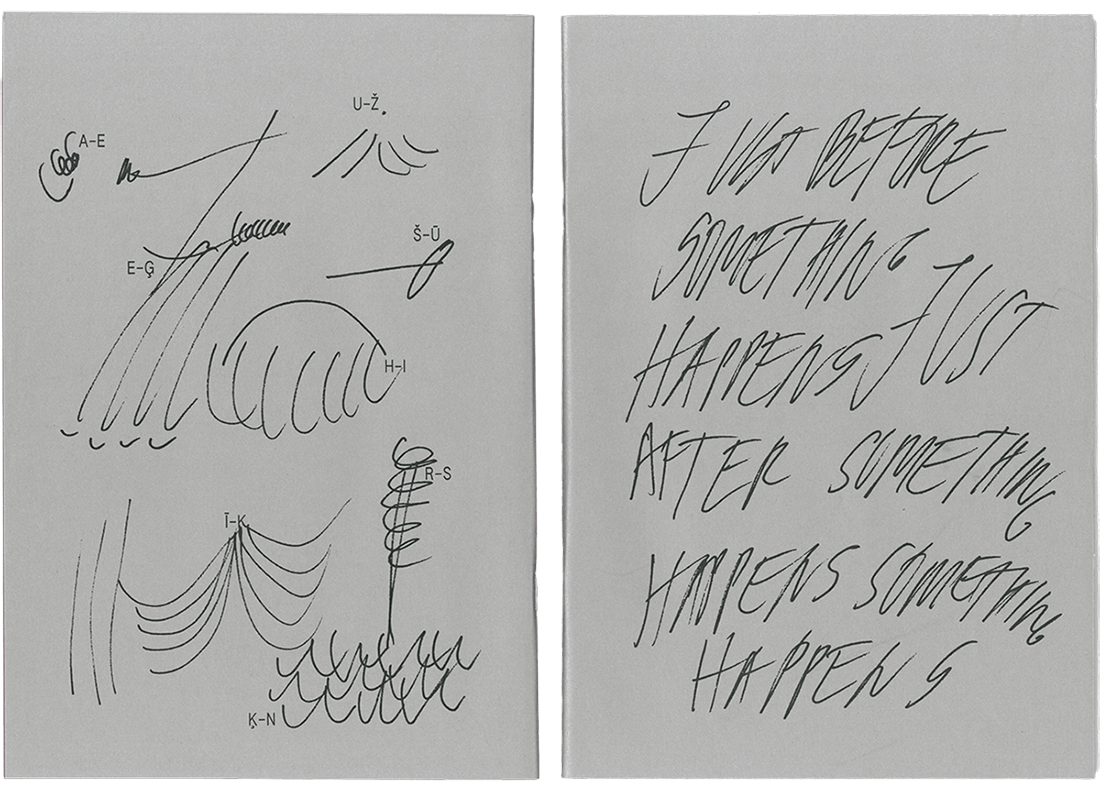 U–Ž
A–E
Š–Ū
E–Ģ
H–I
R–S
Ī–K
Ķ–N
JUST BEFORE
SOMETHING
JUST
HAPPENS
AFTER SOMETHING
HAPPENS SOMETHING
HAPPENS